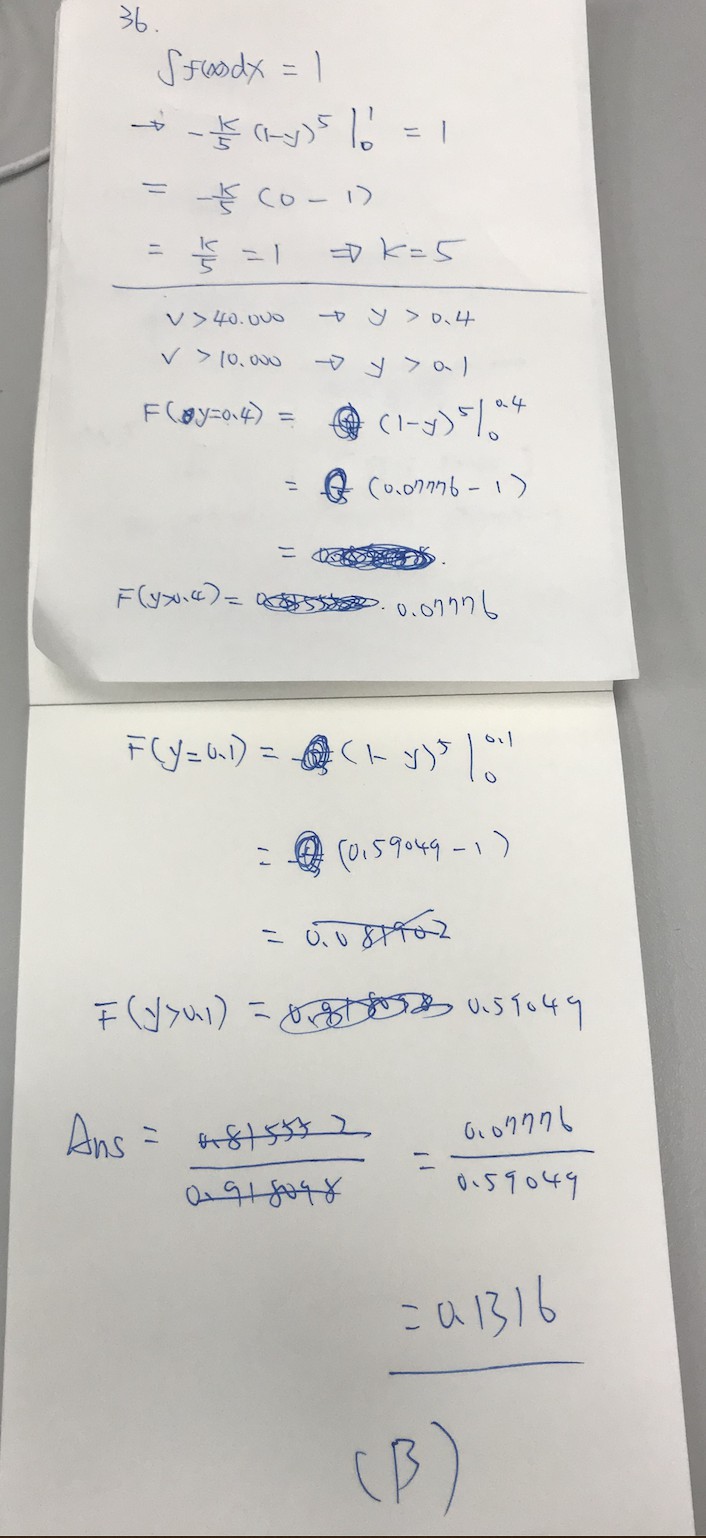 36.
∫f(x)dx = 1
→ -k/5 (1-y)^5 |_0^1 = 1
= -k/5 (0-1)
= k/5 = 1 ⇒ k=5
V>40.000 → y > 0.4
V>10.000 → y > 0.1
F(y=0.4) = (1-y)^5 |_0^0.4
= (0.07776-1)
=
F(y>0.4) = 0.07776
F(y=0.1) = (1-y)^5 |_0^0.1
= (0.59049-1)
= 0.081902
F(y>0.1) = 0.59049
Ans = 0.815552/0.918098 = 0.07776/0.59049
= 0.1316
(B)